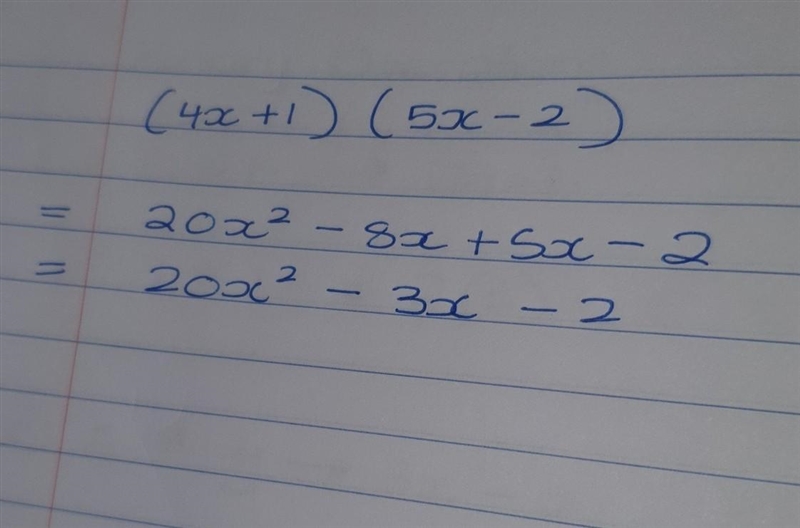 (4x + 1) (5x - 2)
= 20x² - 8x + 5x - 2
= 20x² - 3x - 2